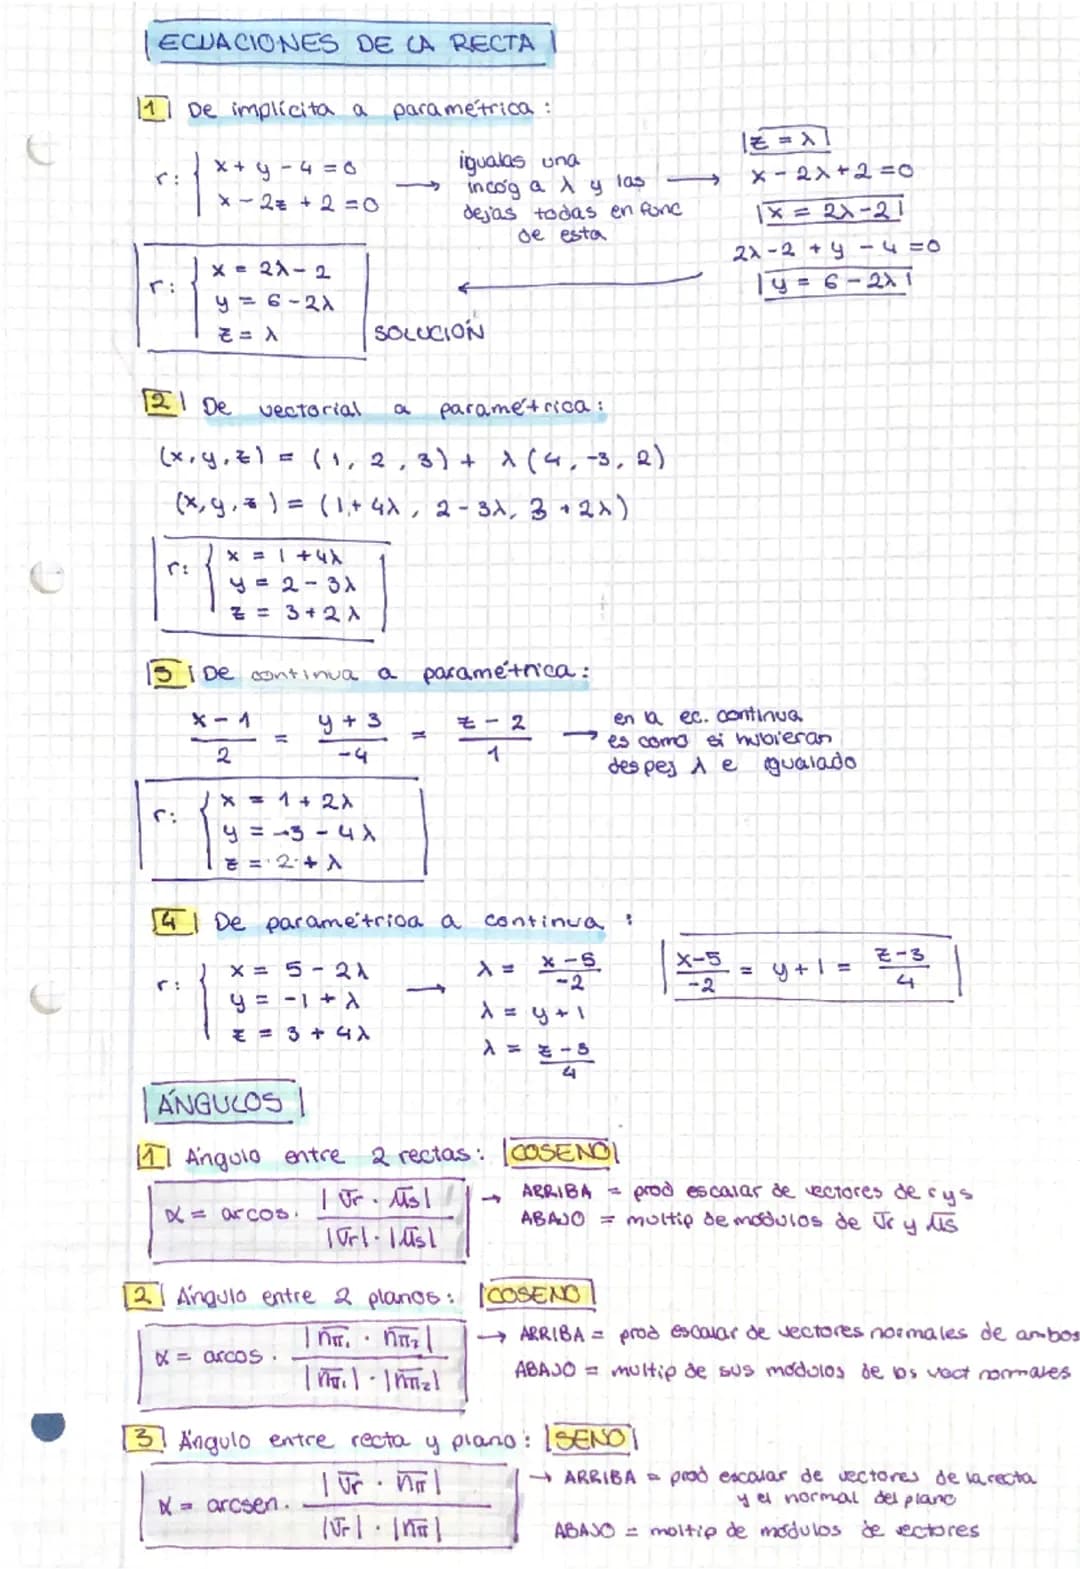 ECUACIONES DE LA RECTA
1 De implícita a paramétrica:
r: { x + y - 4 = 0
x - 2z + 2 = 0
→ igualas una
incóg a λ y las →
dejas todas en func
de esta
z = λ
x - 2λ + 2 = 0
x = 2λ - 2
2λ - 2 + y - 4 = 0
y = 6 - 2λ
r: { x = 2λ - 2
y = 6 - 2λ
z = λ
SOLUCIÓN
2 De vectorial a paramétrica:
(x, y, z) = (1, 2, 3) + λ (4, -3, 2)
(x, y, z) = (1 + 4λ, 2 - 3λ, 3 + 2λ)
r: { x = 1 + 4λ
y = 2 - 3λ
z = 3 + 2λ
3 De continua a paramétrica:
(x - 1)/2 = (y + 3)/-4 = (z - 2)/1
→ en la ec. continua
es como si hubieran
despej λ e igualado
r: { x = 1 + 2λ
y = -3 - 4λ
z = 2 + λ
4 De paramétrica a continua:
r: { x = 5 - 2λ
y = -1 + λ
z = 3 + 4λ
→ λ = (x - 5)/-2
λ = y + 1
λ = (z - 3)/4
(x - 5)/-2 = y + 1 = (z - 3)/4
ÁNGULOS
1 Ángulo entre 2 rectas: COSENO
α = arcos. |v⃗r · u⃗s| / |v⃗r| · |u⃗s|
→ ARRIBA = prod escalar de vectores de r y s
ABAJO = multip de módulos de v⃗r y u⃗s
2 Ángulo entre 2 planos: COSENO
α = arcos. |n⃗π₁ · n⃗π₂| / |n⃗π₁| · |n⃗π₂|
→ ARRIBA = prod escalar de vectores normales de ambos
ABAJO = multip de sus módulos de los vect normales
3 Ángulo entre recta y plano: SENO
α = arcsen. |v⃗r · n⃗π| / |v⃗r| · |n⃗π|
→ ARRIBA = prod escalar de vectores de la recta
y el normal del plano
ABAJO = moltip de módulos de vectores